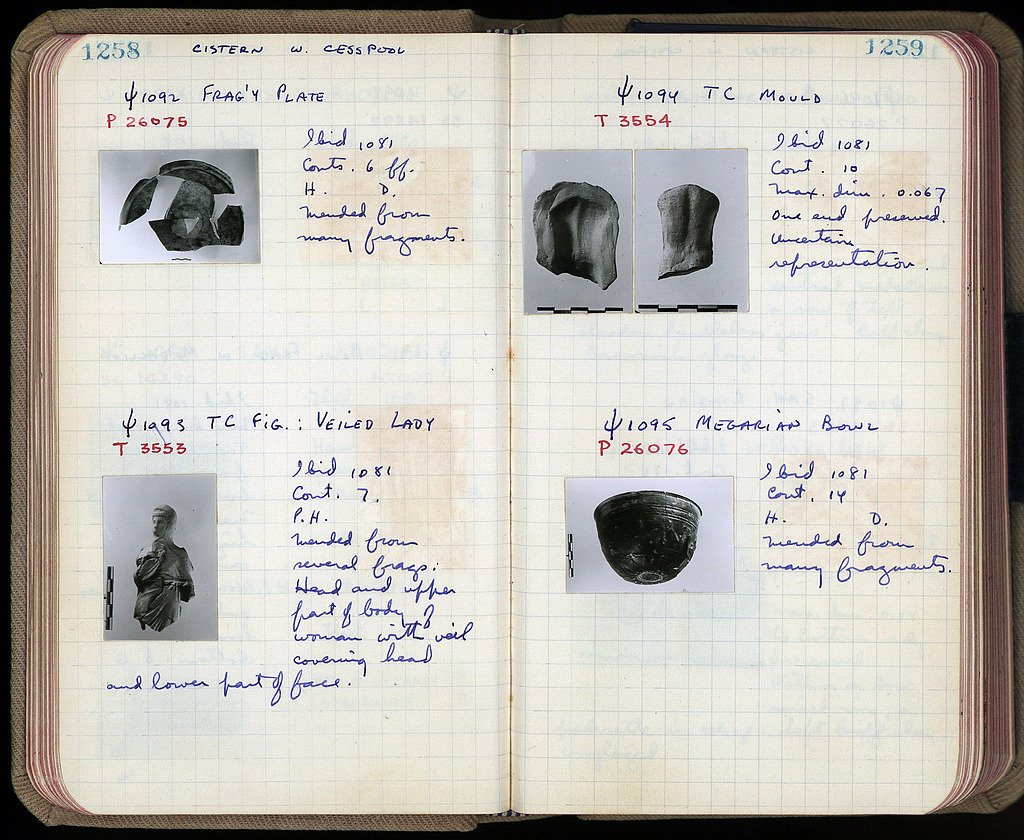 1258 CISTERN W. CESSPOOL
ψ1092 FRAG'Y PLATE
P 26075
Ibid 1081
Conts. 6 ff.
H. D.
Mended from
many fragments.
ψ1093 TC FIG.: VEILED LADY
T 3553
Ibid 1081
Cont. 7.
P.H.
Mended from
several frags:
Head and upper
part of body of
woman with veil
covering head
and lower part of face.
1259
ψ1094 TC MOULD
T 3554
Ibid 1081
Cont. 10
Max. dim. 0.067
One end preserved.
Uncertain
representation.
ψ1095 MEGARIAN BOWL
P 26076
Ibid 1081
Cont. 14
H. D.
Mended from
many fragments.